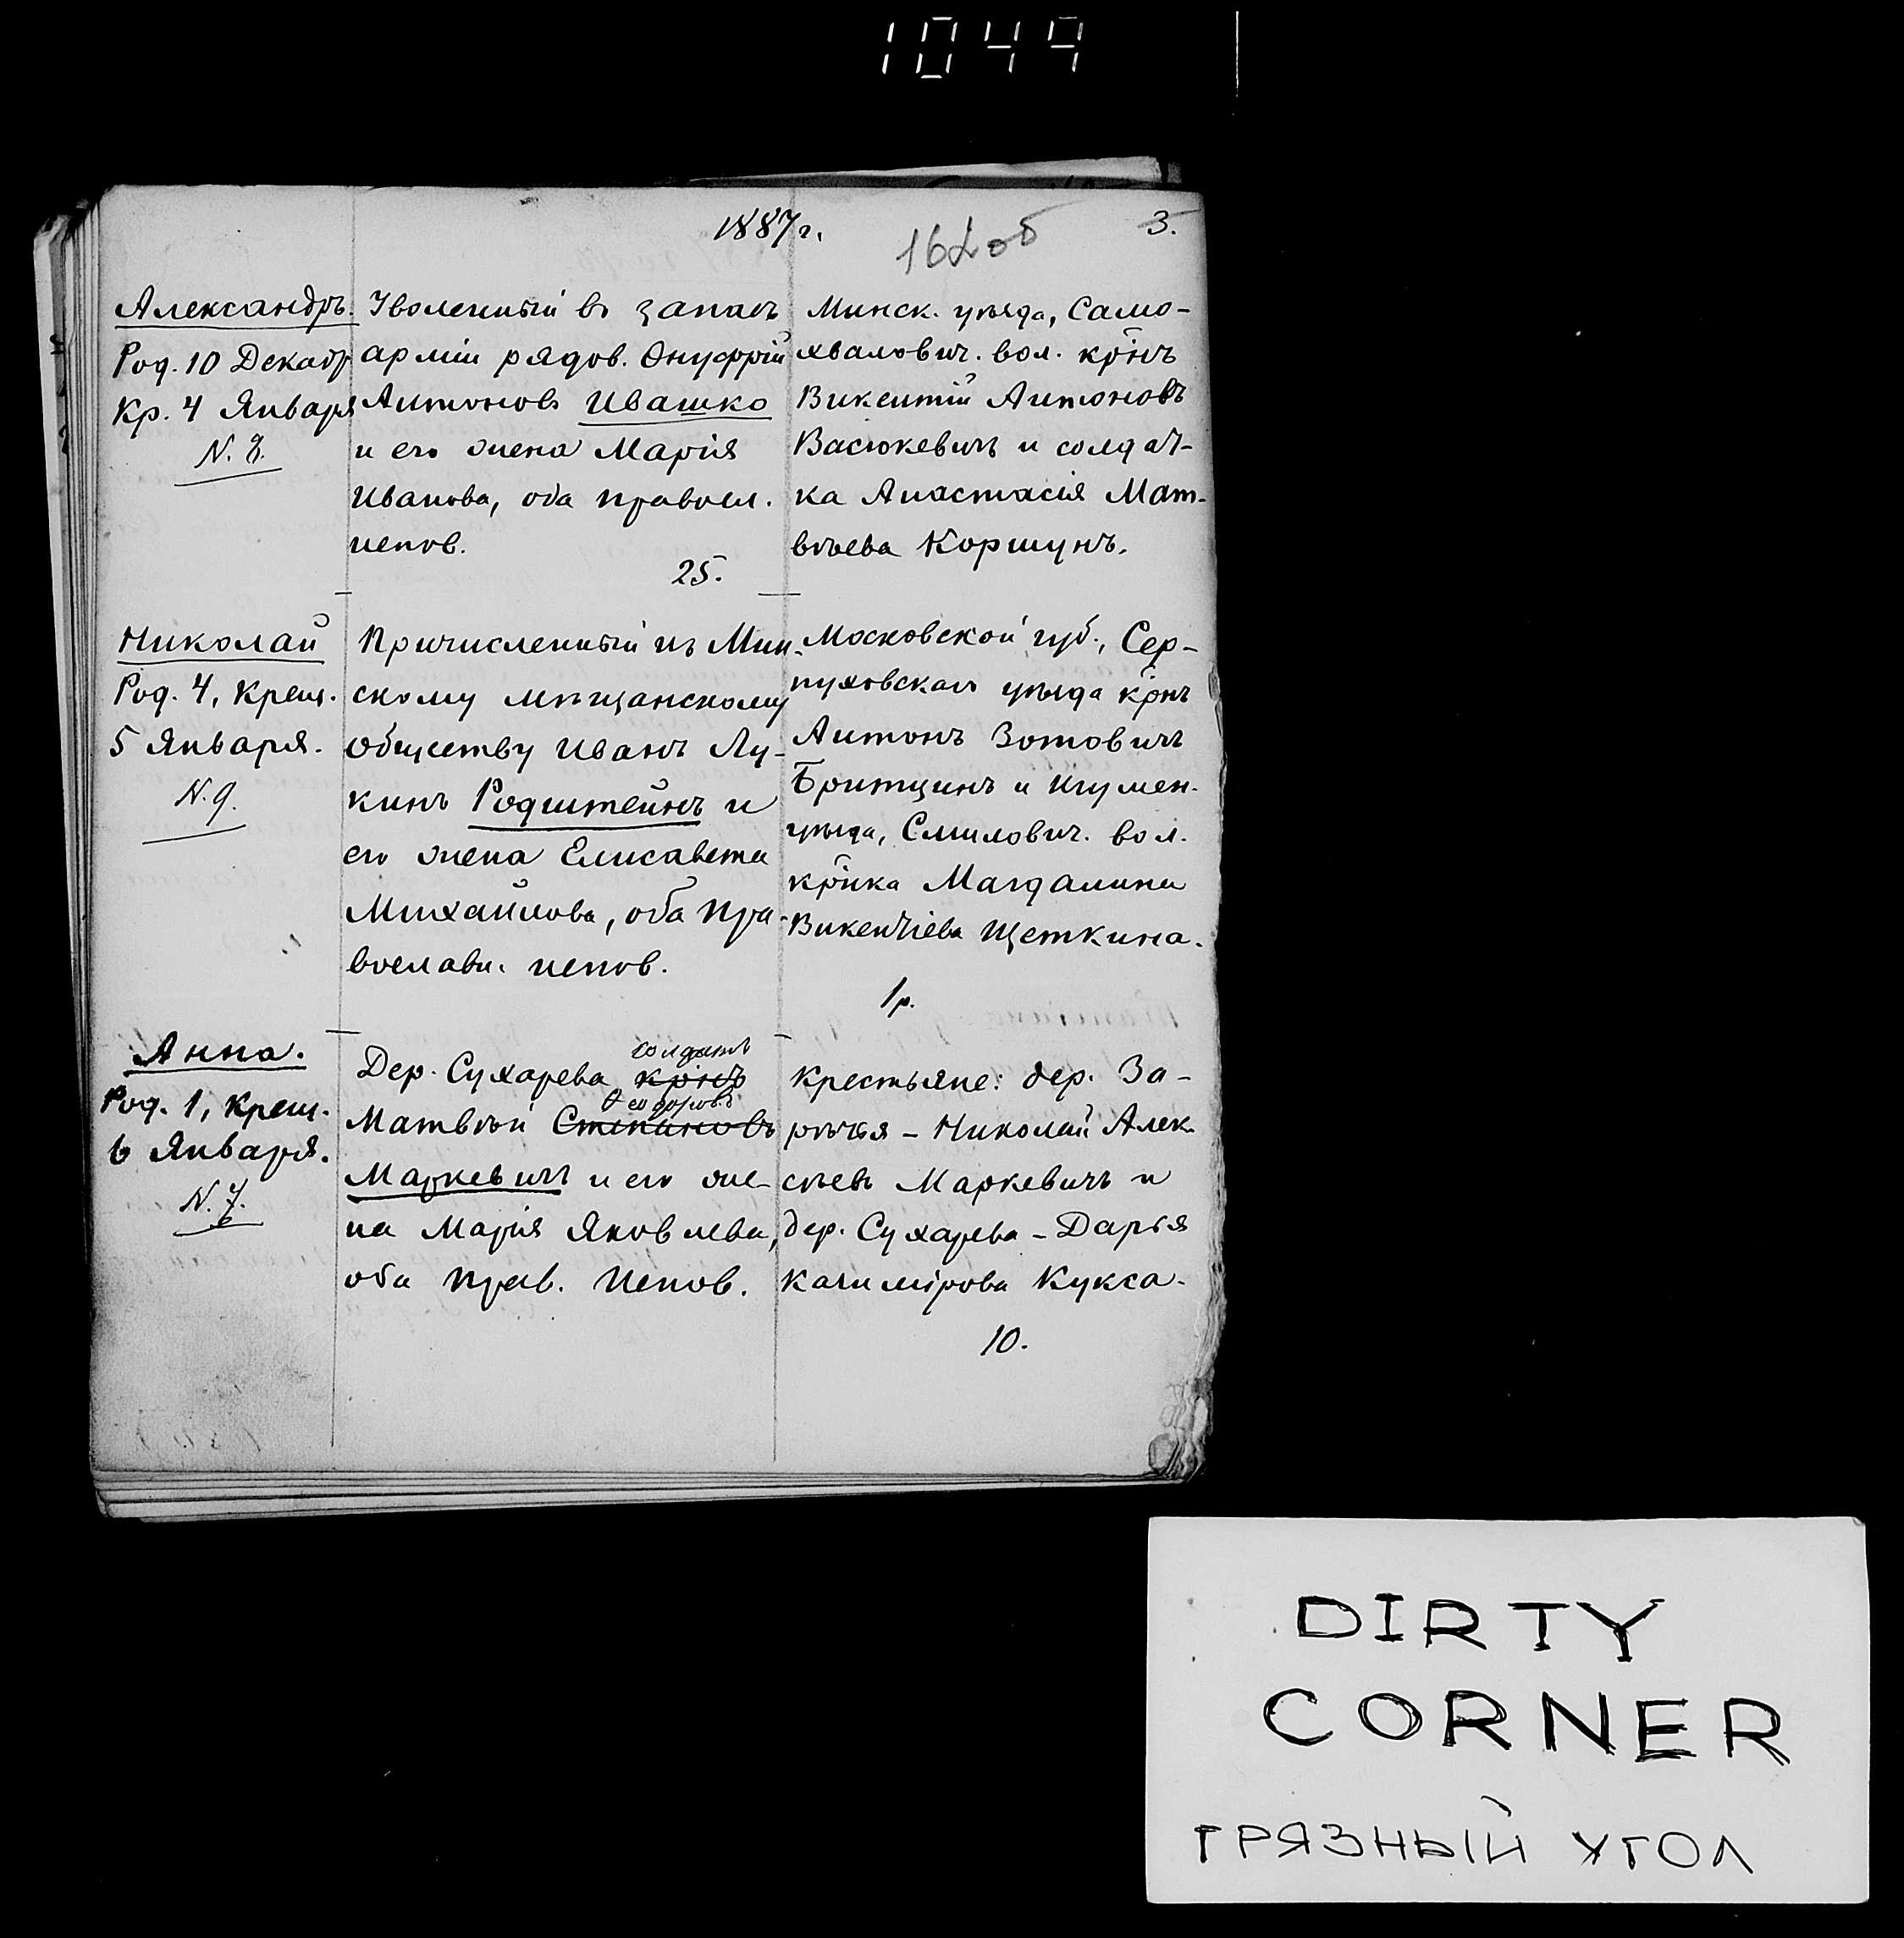 1049
1887 г.
3.
Александръ.
Род. 10 Декабр
Кр. 4 Января
N. 8.
Уволенный въ запасъ
арміи рядов. Онуфрій
Антоновъ Ивашко
и его жена Марія
Иванова, оба правосл.
испов.
25.
Минск. уѣзда, Само-
хвалович. вол. крнъ
Викентій Антоновъ
Васюкевичъ и солдат-
ка Анастасія Мат-
вѣева Коршунъ.
Николай
Род. 4, Крещ.
5 Января.
N. 9.
Причисленный къ Мин-
скому мѣщанскому
обществу Иванъ Лу-
кинъ Родштейнъ и
его жена Елисавета
Михайлова, оба пра-
вославн. испов.
Московской губ., Сер-
пуховскаго уѣзда крнъ
Антонъ Зотовичъ
Бритцинъ и Игумен.
уѣзда, Смилович. вол.
крнка Магдалина
Викентіева Щеткина.
1 р.
Анна.
Род. 1, Крещ.
6 Января.
N. 7.
солдатъ
Дер. Сухарева крнъ
Ѳеодоровъ
Матвѣй Степановъ
Маркевичъ и его же-
на Марія Яковлева,
оба прав. испов.
Крестьяне: дер. За-
рѣчья - Николай Алек
сѣевъ Маркевичъ и
дер. Сухарева - Дарья
Казимірова Кукса.
10.
DIRTY
CORNER
ГРЯЗНЫЙ УГОЛ